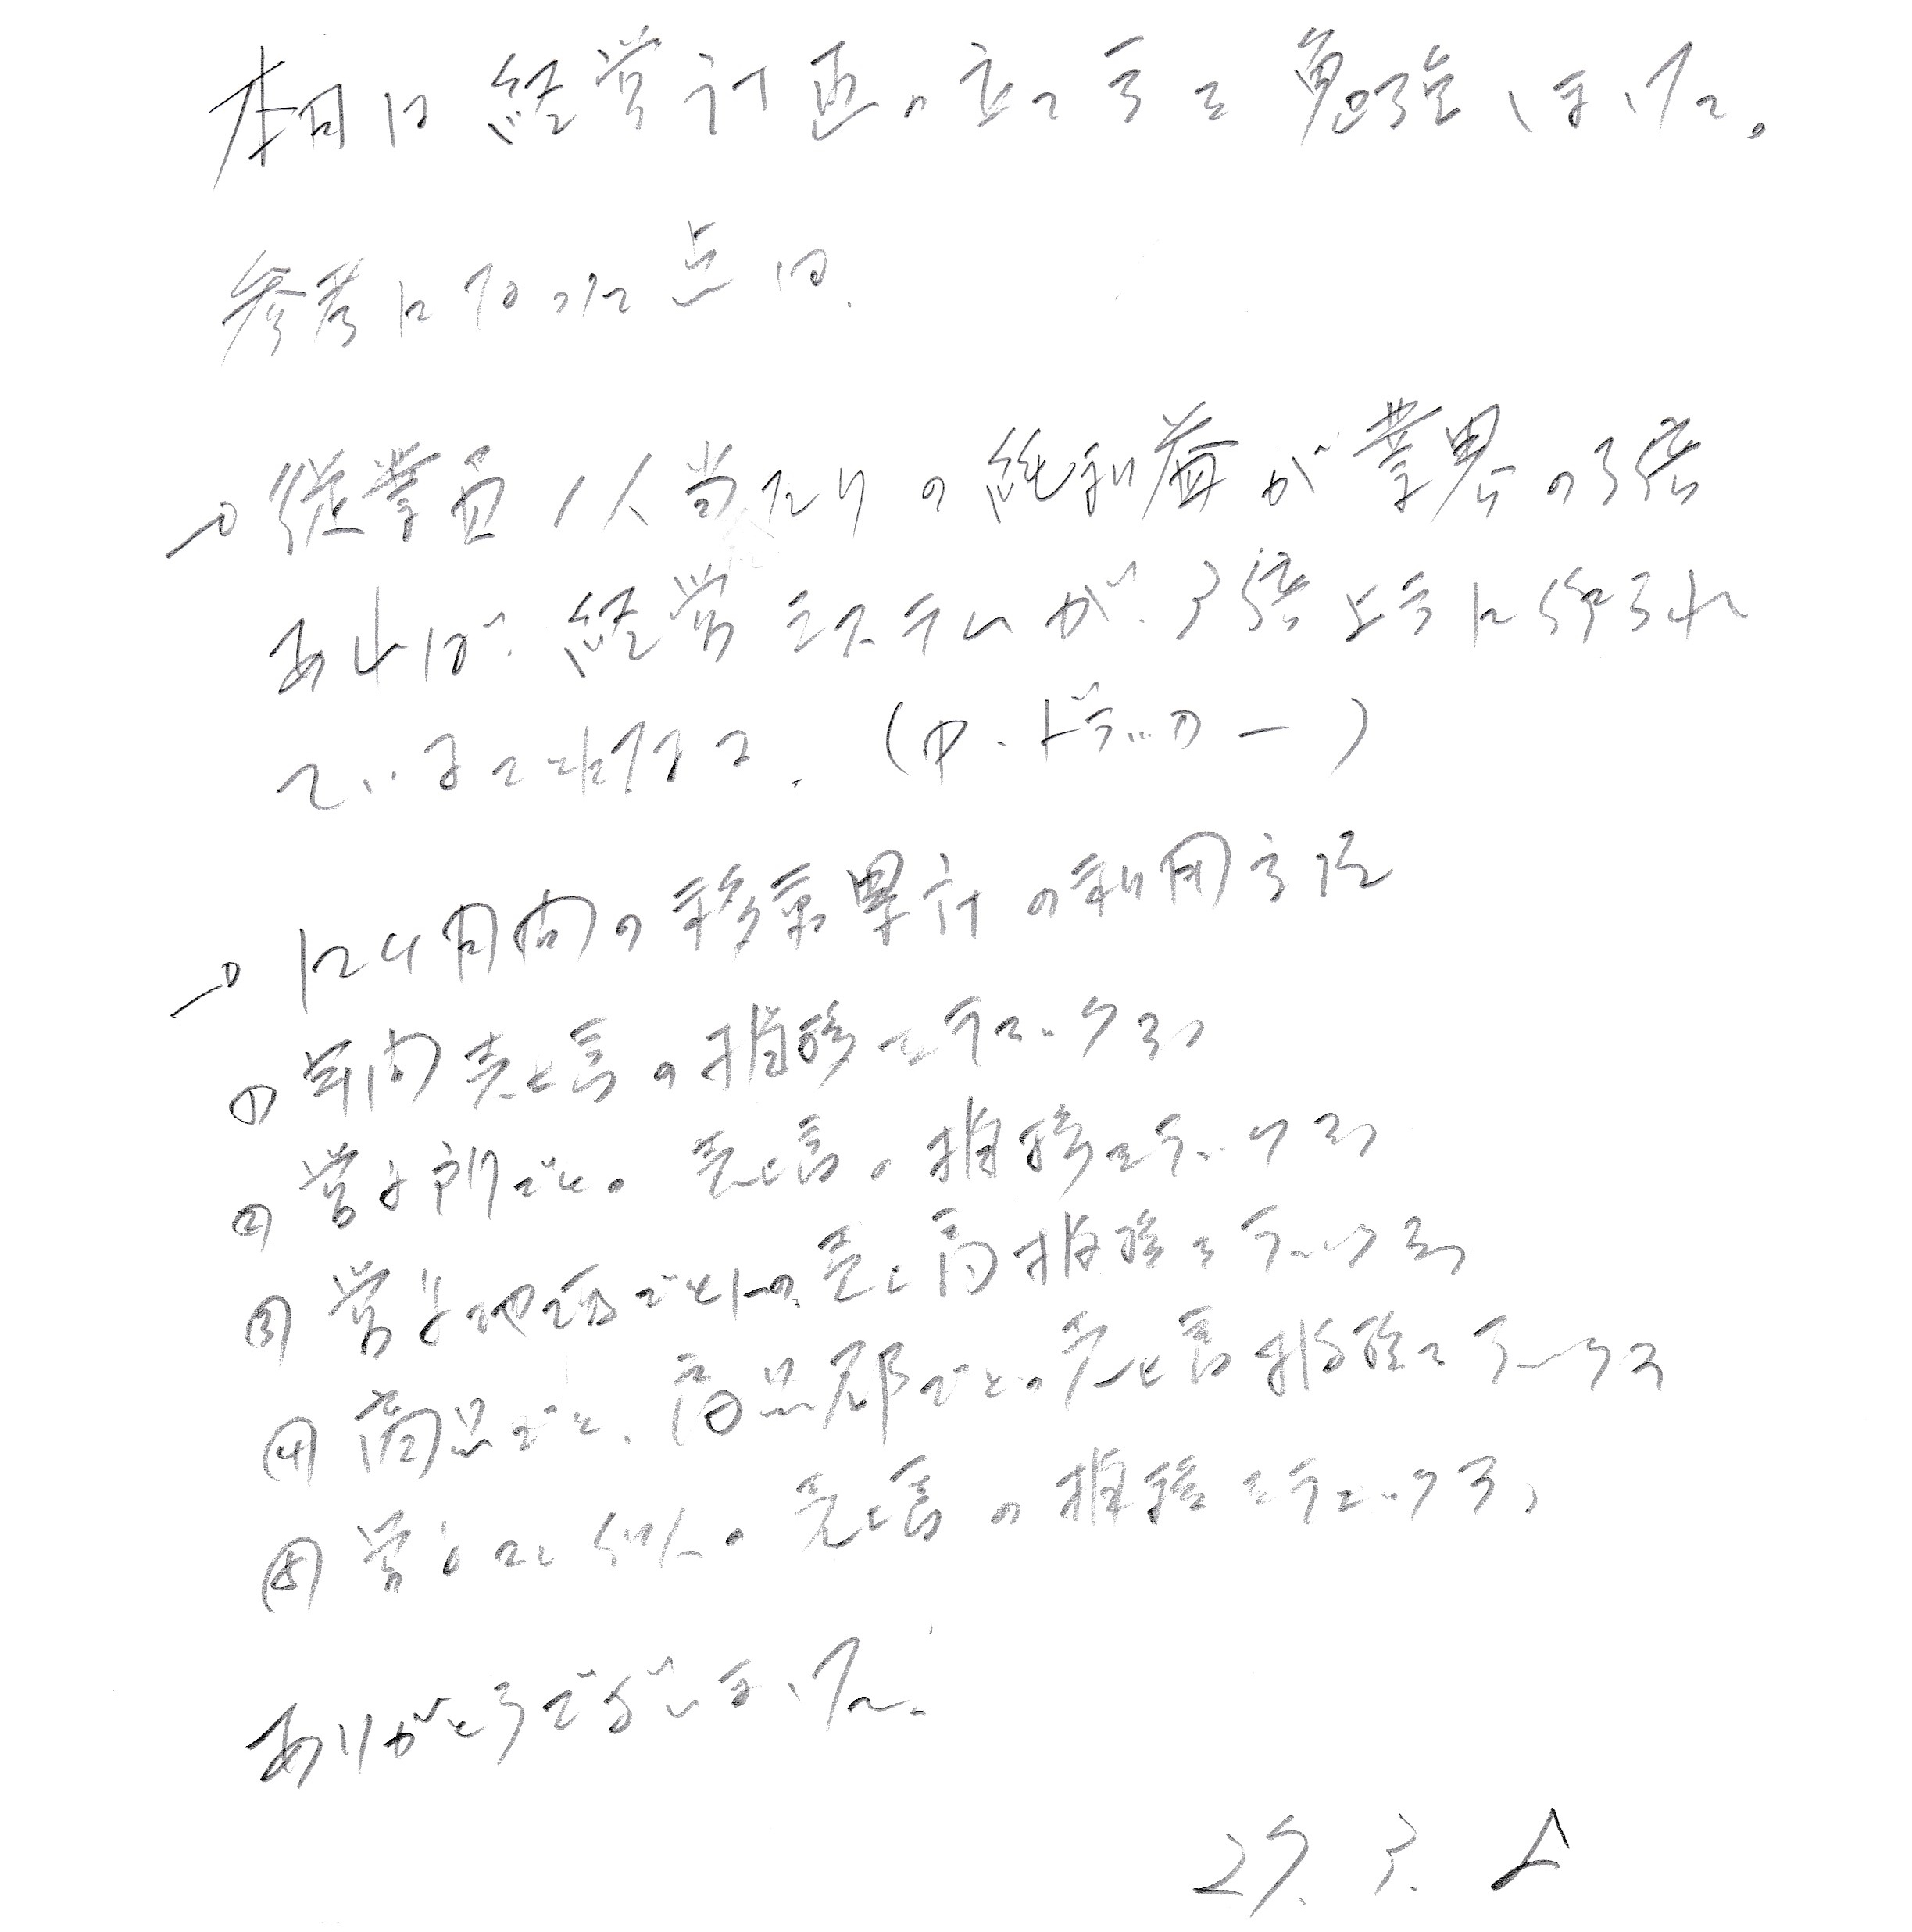 本日は経営計画の立て方を勉強しました。
参考になった点は、
→従業員1人当たりの純利益が業界の3倍
あれば、経営システムが、3倍上手に作られ
ている
、(P.ドラッカー)
→12ヶ月間の移動累計の利用方法
① 年間売上高の推移をチェックする
② 営業所ごとの売上高の推移をチェックする
③ 営業地区ごとの売上高推移をチェックする
④ 商品ごと、商品群ごとの売上高推移をチェックする
⑤ 営業マン個人の売上高の推移をチェックする
ありがとうございました。
29. 3.